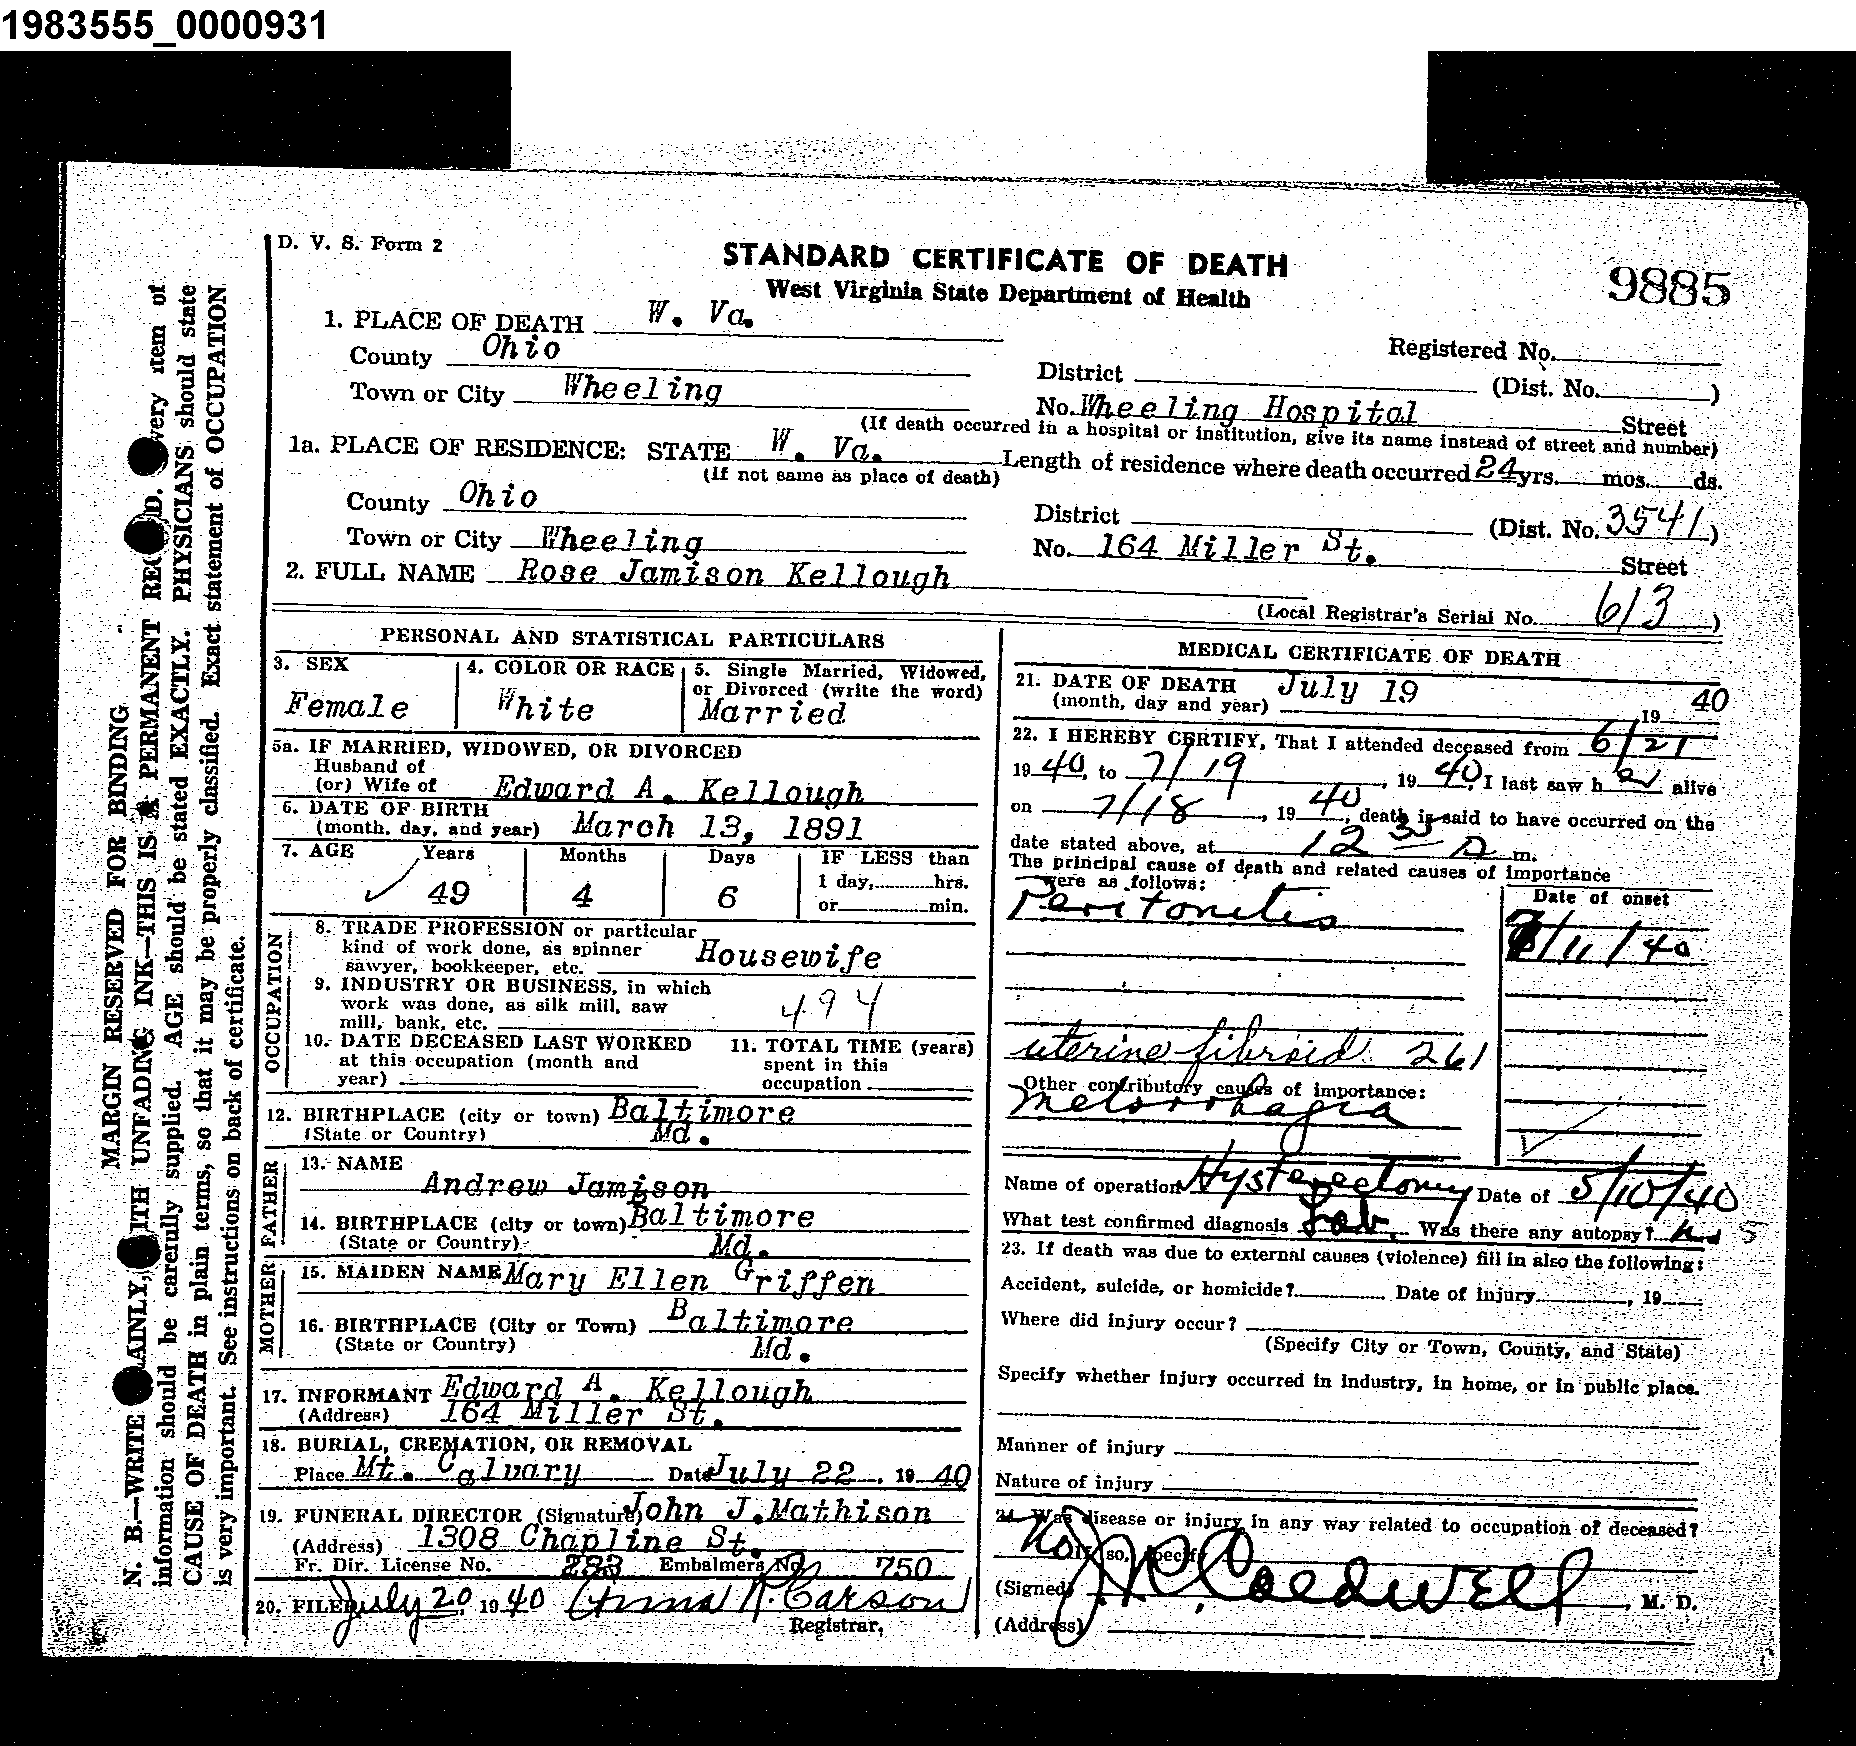 1983555_0000931
D. V. S. Form 2
STANDARD CERTIFICATE OF DEATH
West Virginia State Department of Health
9885
1. PLACE OF DEATH W. Va.
Registered No.
County Ohio
District (Dist. No. )
Town or City Wheeling
No. Wheeling Hospital Street
(If death occurred in a hospital or institution, give its name instead of street and number)
1a. PLACE OF RESIDENCE: STATE W. Va.
(If not same as place of death)
Length of residence where death occurred 24 yrs. mos. ds.
County Ohio
District (Dist. No. 3541)
Town or City Wheeling
No. 164 Miller St. Street
2. FULL NAME Rose Jamison Kellough
(Local Registrar's Serial No. 613)
MARGIN RESERVED FOR BINDING
N. B.—WRITE PLAINLY, WITH UNFADING INK—THIS IS A PERMANENT RECORD. Every item of
information should be carefully supplied. AGE should be stated EXACTLY. PHYSICIANS should state
CAUSE OF DEATH in plain terms, so that it may be properly classified. Exact statement of OCCUPATION
is very important. See instructions on back of certificate.
PERSONAL AND STATISTICAL PARTICULARS
3. SEX
Female
4. COLOR OR RACE
White
5. Single Married, Widowed,
or Divorced (write the word)
Married
5a. IF MARRIED, WIDOWED, OR DIVORCED
Husband of
(or) Wife of Edward A. Kellough
6. DATE OF BIRTH
(month, day, and year) March 13, 1891
7. AGE Years Months Days IF LESS than
1 day, hrs.
49 4 6 or min.
OCCUPATION
8. TRADE PROFESSION or particular
kind of work done, as spinner
sawyer, bookkeeper, etc. Housewife
9. INDUSTRY OR BUSINESS, in which
work was done, as silk mill, saw
mill, bank, etc. 494
10. DATE DECEASED LAST WORKED
at this occupation (month and
year)
11. TOTAL TIME (years)
spent in this
occupation
12. BIRTHPLACE (city or town) Baltimore
(State or Country) Md.
FATHER
13. NAME
Andrew Jamison
14. BIRTHPLACE (city or town) Baltimore
(State or Country) Md.
MOTHER
15. MAIDEN NAME Mary Ellen Griffen
16. BIRTHPLACE (City or Town) Baltimore
(State or Country) Md.
17. INFORMANT Edward A. Kellough
(Address) 164 Miller St.
18. BURIAL, CREMATION, OR REMOVAL
Place Mt. Calvary Date July 22, 1940
19. FUNERAL DIRECTOR (Signature) John J. Mathison
(Address) 1308 Chapline St.
Fr. Dir. License No. 283 Embalmers No. 750
20. FILED July 20, 1940 Anna R. Carson
Registrar.
MEDICAL CERTIFICATE OF DEATH
21. DATE OF DEATH July 19 1940
(month, day and year)
22. I HEREBY CERTIFY, That I attended deceased from 6/21
1940, to 7/19, 1940, I last saw her alive
on 7/18, 1940, death is said to have occurred on the
date stated above, at 12 35 a m.
The principal cause of death and related causes of importance
were as follows:
Date of onset
Peritonitis
7/11/40
uterine fibroid 261
Other contributory causes of importance:
Metorrhagia
Name of operation Hysterectomy Date of 5/10/40
What test confirmed diagnosis Lab. Was there any autopsy? no 5
23. If death was due to external causes (violence) fill in also the following:
Accident, suicide, or homicide? Date of injury , 19
Where did injury occur?
(Specify City or Town, County, and State)
Specify whether injury occurred in industry, in home, or in public place.
Manner of injury
Nature of injury
24. Was disease or injury in any way related to occupation of deceased?
No If so, specify
(Signed) J. R. Caldwell, M. D.
(Address)